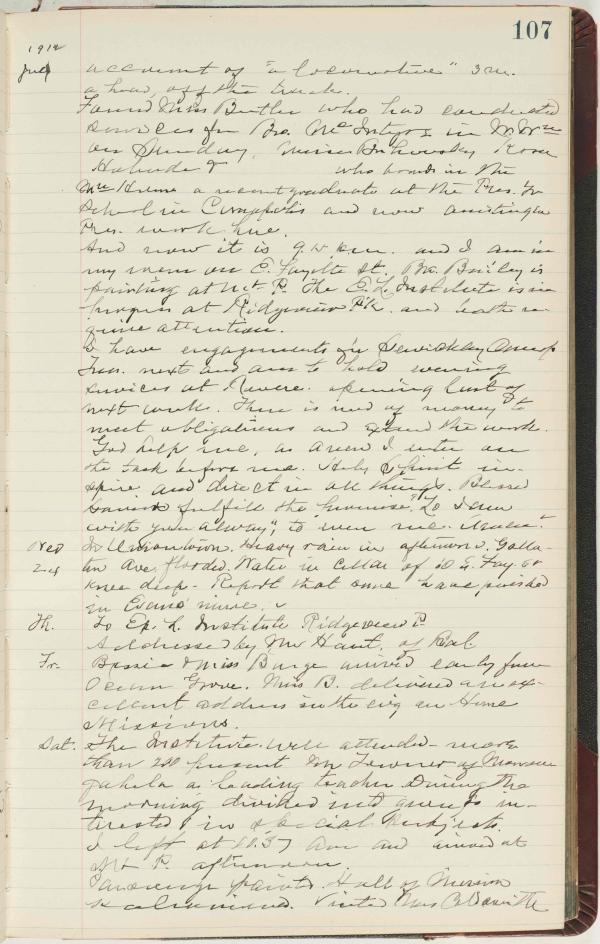 107
1912
July account of "a locomotive" 3 m.
ahead, off the track.
Found Miss Butler who had conducted
services for Bro. McIntyre in
on Sunday, Rosa
& who boards in the
Mr. Hume a recent graduate at the Pres.
School in and now assisting in
Pres. work here.
And now it is 9. and I am in
my room on E. Fayette St. Bro. Bailey is
painting at Mt. P. The E. L. Institute is in
progress at Ridgeview P'k. and both re-
quire attention.
I have engagements in Sewickley
next and am to hold evening
services at Revere. opening last of
next week. There is need of money to
meet obligations and extend the work.
God help me, as I enter on
the task before me. Holy Spirit in-
spire and direct in all things. Blessed
fulfill the promise, "Lo I am
with you alway," to even me. Amen.
Wed In Uniontown. Heavy rain in afternoon. Galla-
24 tin Ave. flooded. Water in cellar of E. Fay. St
knee deep. Report that some have perished
in Evans mine.
Th. To Ep. L. Institute Ridgeview P.
Addressed by Mr. of
Fr. Bessie & Miss Burge arrived early from
Ocean Grove. Miss B. delivered an ex-
cellent address in the evg on Home
Missions.
Sat. The Institute well attended - more
than 200 present Mr. Towner of Monon-
gahela a leading teacher During the
morning divided into groups in-
terested in special subjects.
I left at 10.37 Am and arrived at
Mt P. afternoon.
paints Hall of Mission
Visited Mrs